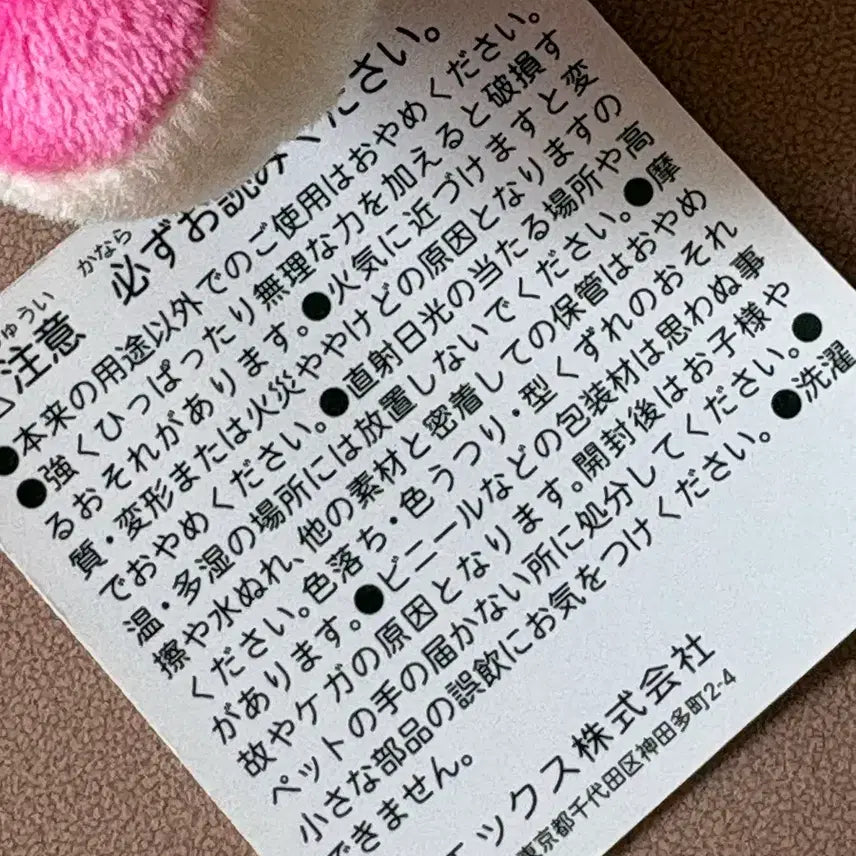 ゅうい かなら
注意 必ずお読みください。
●本来の用途以外でのご使用はおやめください。
●強くひっぱったり無理な力を加えると破損す
るおそれがあります。●火気に近づけますと変
質・変形または火災ややけどの原因となりますの
でおやめください。●直射日光の当たる場所や高
温・多湿の場所には放置しないでください。●摩
擦や水ぬれ、他の素材と密着しての保管はおやめ
ください。色落ち・色うつり・型くずれのおそれ
があります。●ビニールなどの包装材は思わぬ事
故やケガの原因となります。開封後はお子様や
ペットの手の届かない所に処分してください。●
小さな部品の誤飲にお気をつけください。●洗濯
できません。
ックス株式会社
東京都千代田区神田多町2-4